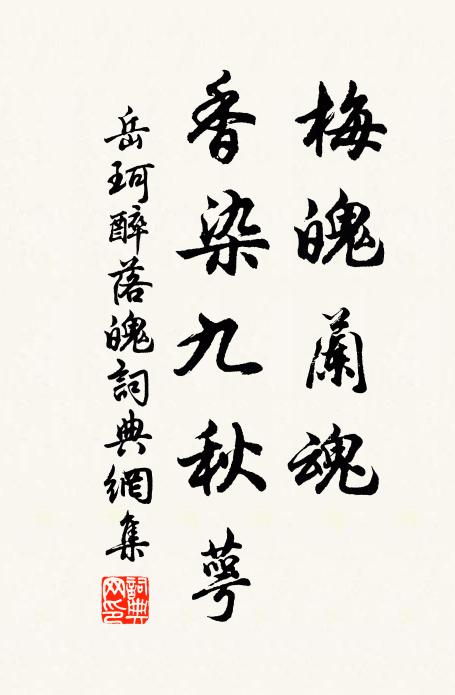 梅魄蘭魂
香染九秋蕚
岳珂醉落魄詞典網集
詞典網印